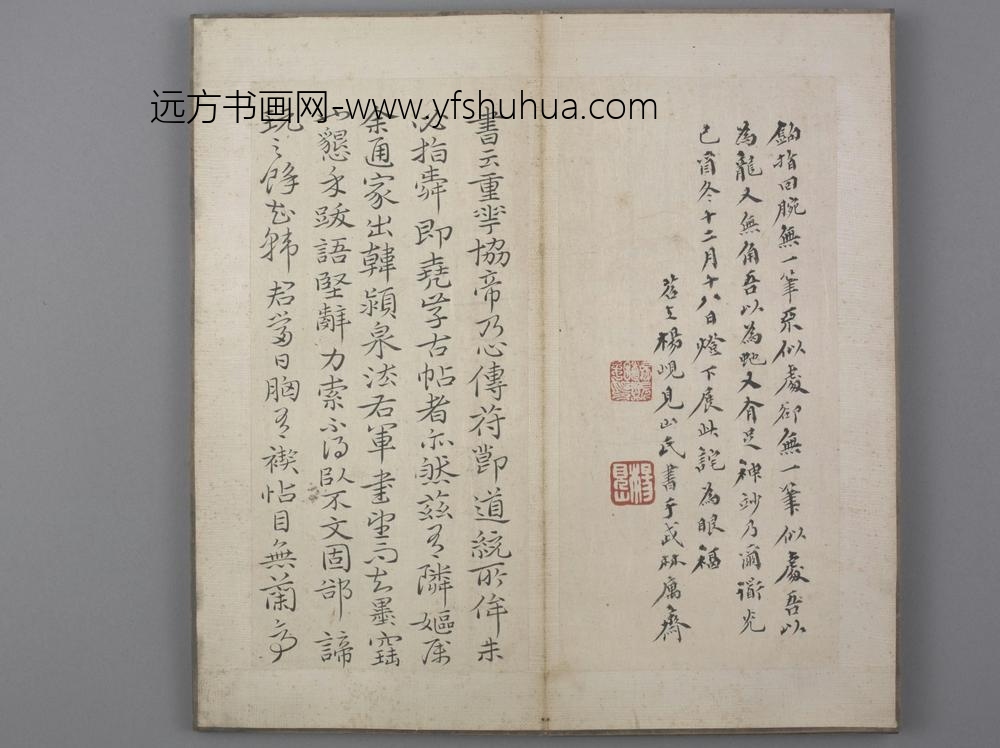 远方书画网-www.yfshuhua.com
鉤指回腕無一筆不似處卻無一筆似處吾以
為龍又無角吾以為蛇又有足神妙乃爾衢光
己酉冬十二月十八日燈下展此詫為眼福
苕上楊峴見山氏書于武林寓齋
書云重華協帝乃心傳符節道統所侔朱
必指舜即堯學古帖者亦然茲有隣嫗屬
余通家出韓潁泉法右軍書望而知墨寶
懇余跋語堅辭力索不得臥不文固鄙諦
玩之餘知韓君當日胸有禊帖目無蘭亭